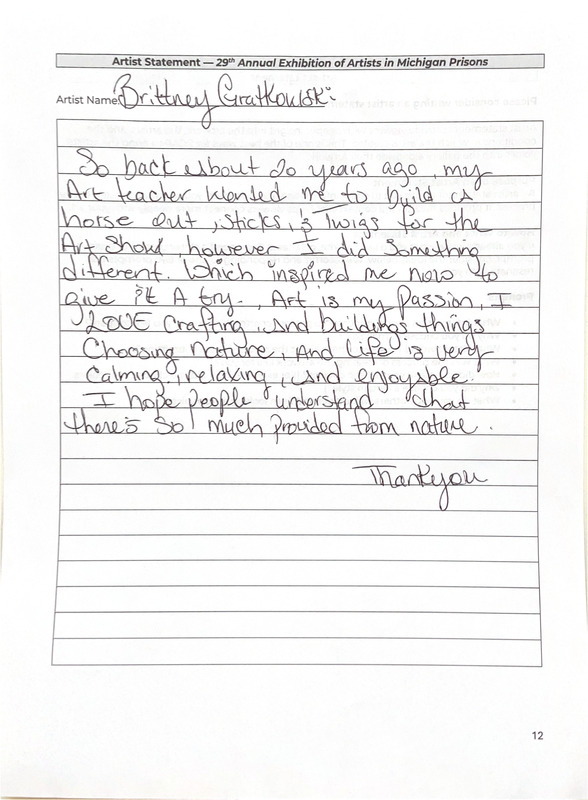 Artist Statement — 29th Annual Exhibition of Artists in Michigan Prisons
Artist Name: Brittney Gratkowski
So back about 20 years ago, my
Art teacher wanted me to build a
horse out, sticks, & Twigs for the
Art Show however I did something
different. Which inspired me now to
give it A try. Art is my Passion, I
LOVE Crafting, and buildings things
Choosing nature, And life is very
Calming, relaxing, and enjoyable.
I hope people understand that
there's so much provided from nature.
Thankyou
12